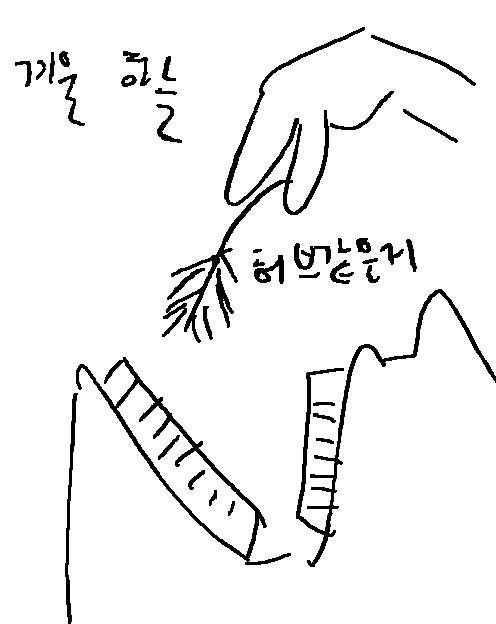 겨울 하늘
허브같은거